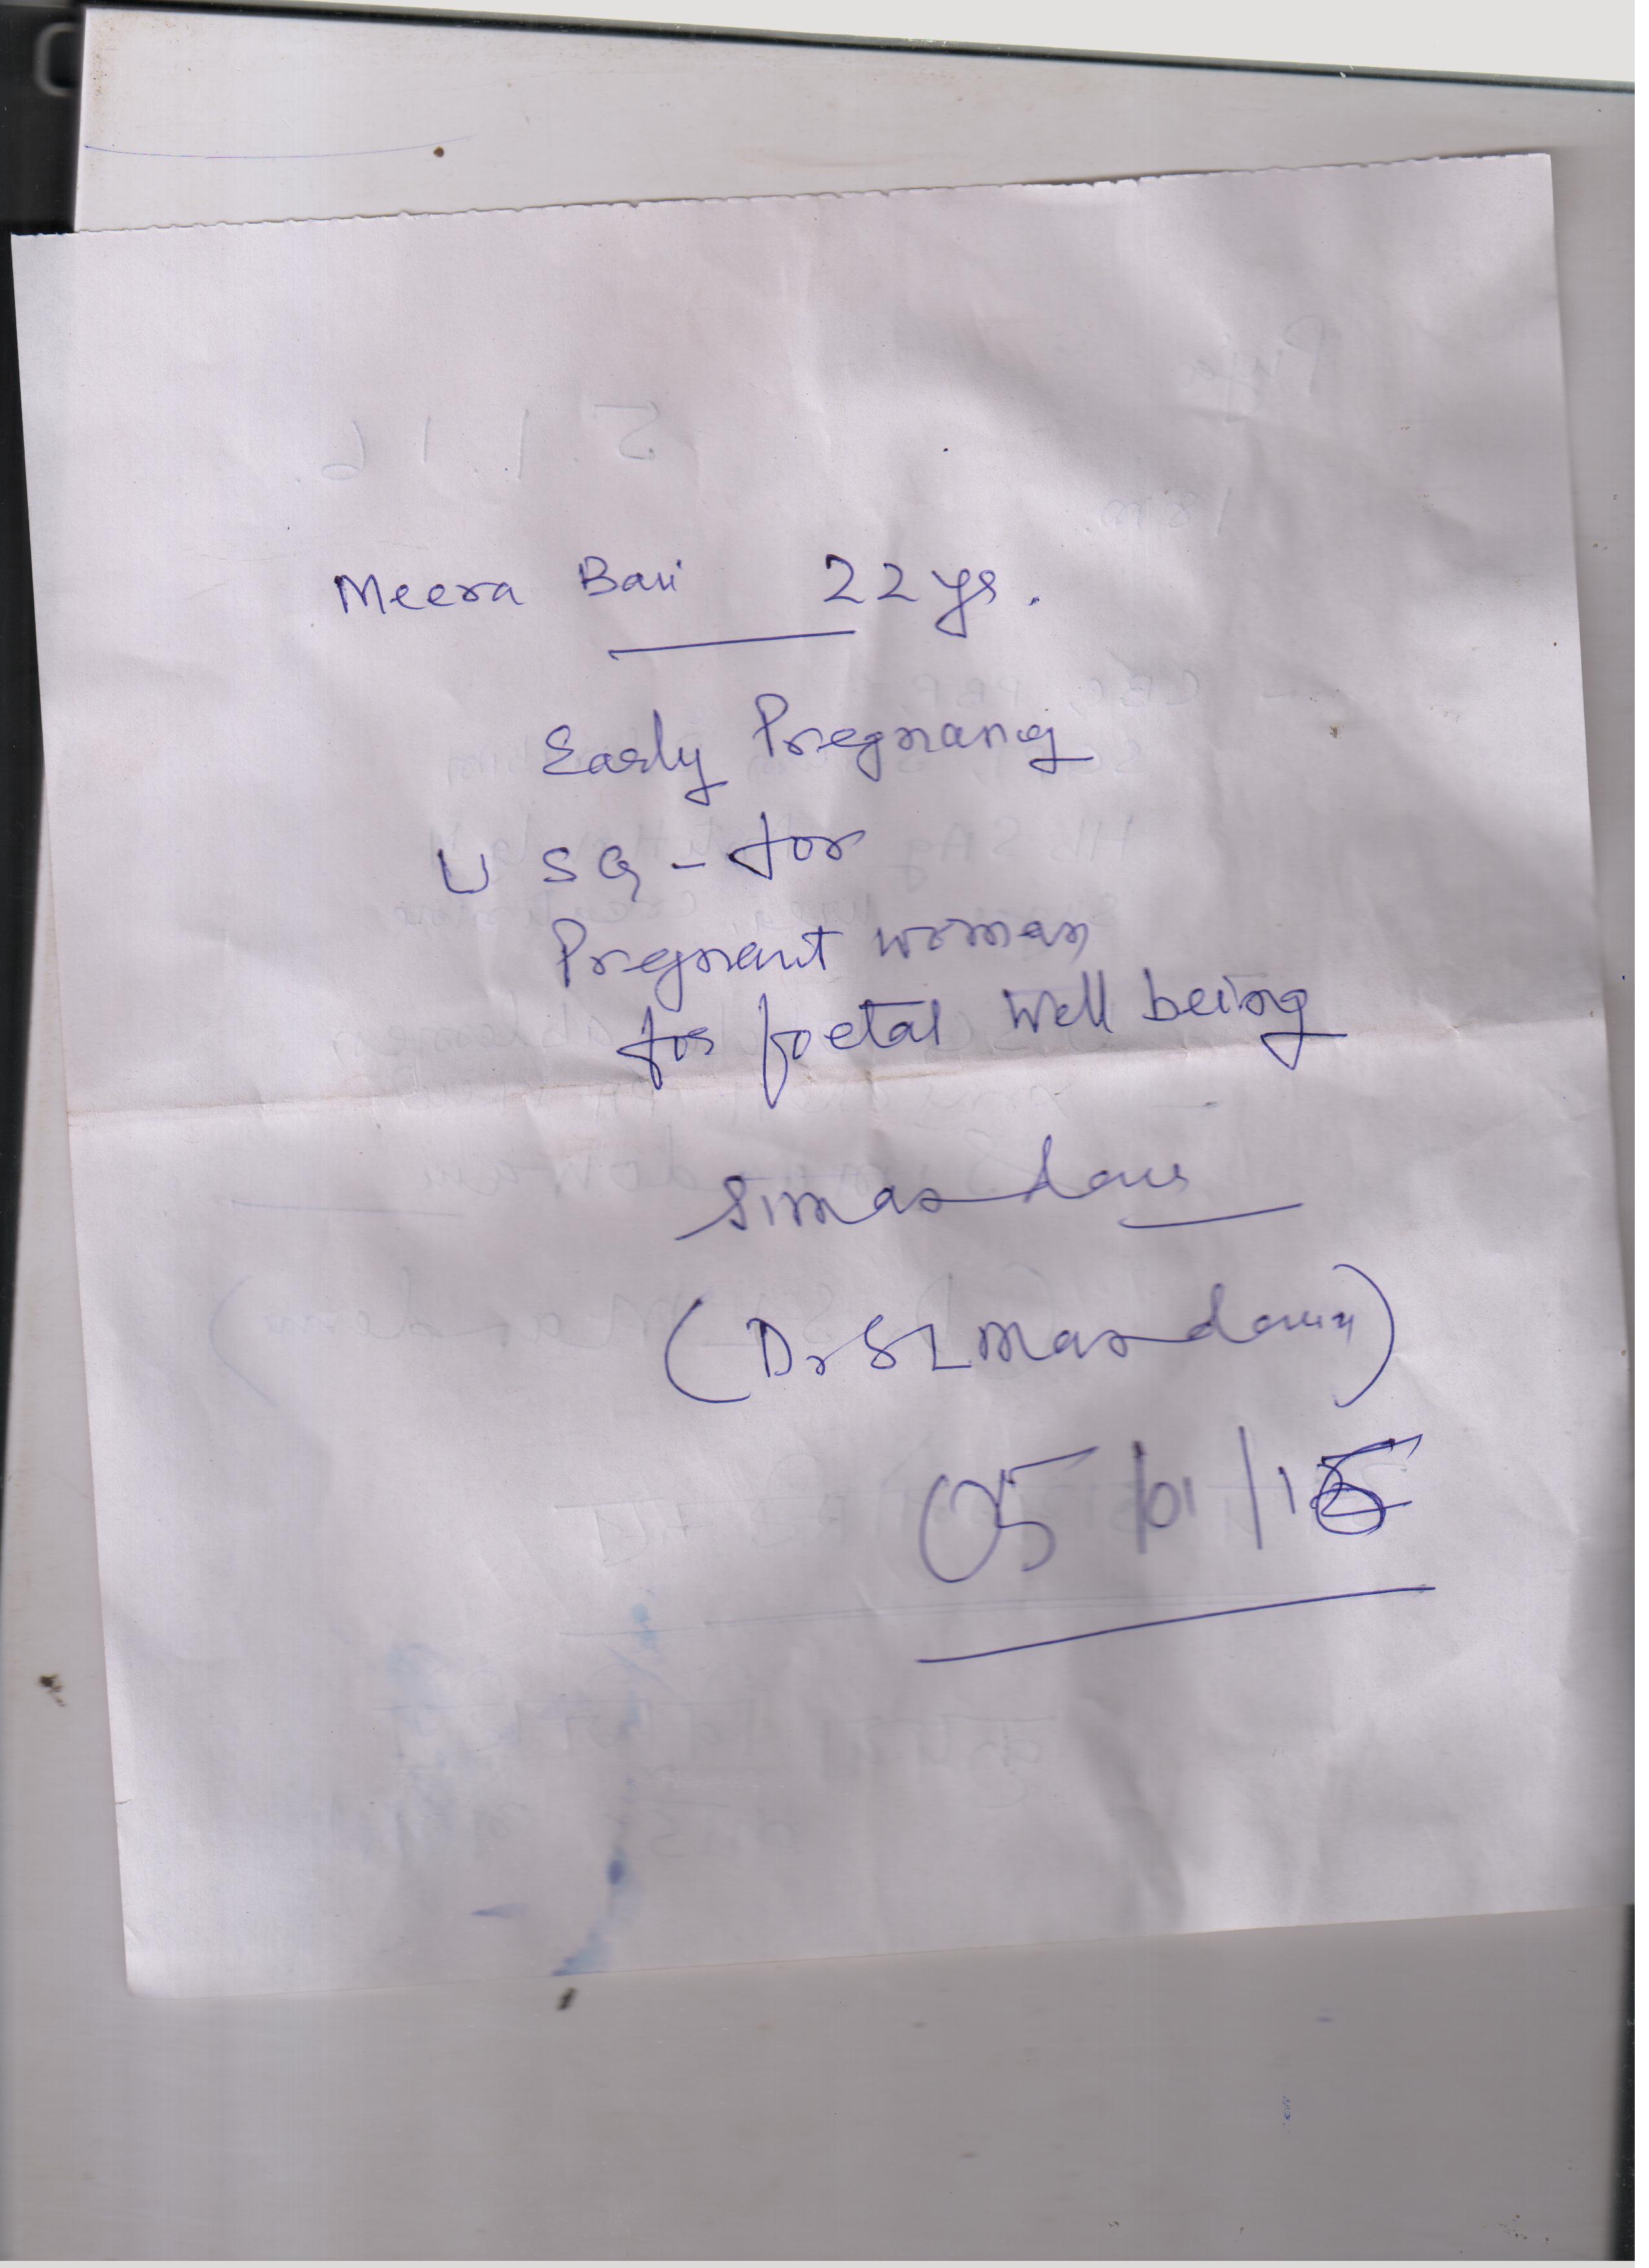 Meera Bari 22 ys.
Early Pregnancy
USG - for
Pregnant woman
for foetal Well being
(Dr SL
05/01/16